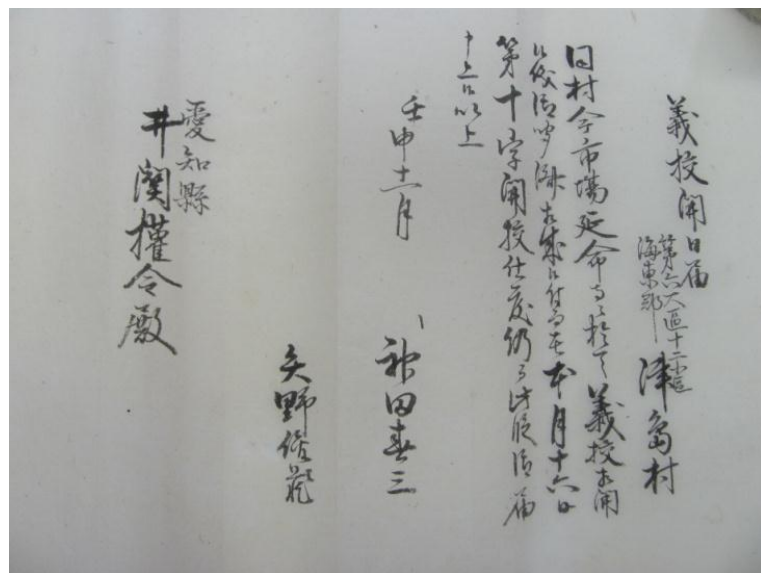 義校開日届
第六大區十二小區
海東郡
津島村
同村今市場延命寺ニ於テ義校相開
候儀御聞済相成候付而者本月十六日
第十字開校仕度仍而此段御届
申上候以上
壬申十一月
田春三
矢野
愛知縣
井関權令殿